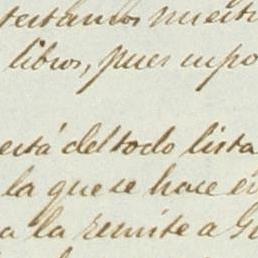 nuestr
libros, pues supo
está del todo lista
la que se hace e
a la remite a